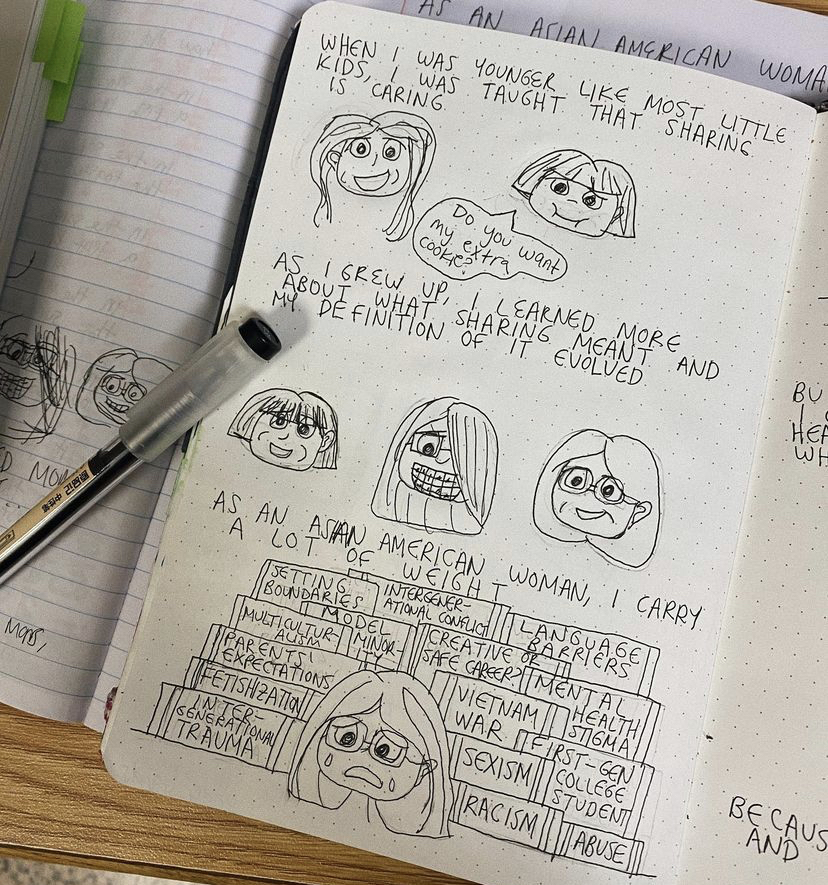 AS AN ASIAN AMERICAN
WHEN I WAS YOUNGER LIKE MOST LITTLE
KIDS, I WAS TAUGHT THAT SHARING
IS CARING
Do you want
my extra
cookie?
AS I GREW UP, I LEARNED MORE
ABOUT WHAT SHARING MEANT AND
MY DEFINITION OF IT EVOLVED
AS AN ASIAN AMERICAN WOMAN, I CARRY
A LOT OF WEIGHT
SETTING
BOUNDARIES
INTERGENER-
ATIONAL CONFLICT
LANGUAGE
BARRIERS
MULTICULTUR-
ALISM
MODEL
MINOR-
ITY
CREATIVE OR
SAFE CAREER?
MENTAL
HEALTH
STIGMA
PARENTS'
EXPECTATIONS
FETISHIZATION
VIETNAM
WAR
INTER-
GENERATIONAL
TRAUMA
SEXISM
FIRST-GEN
COLLEGE
STUDENT
RACISM
ABUSE
BU
HEA
WH
BECAUS
AND